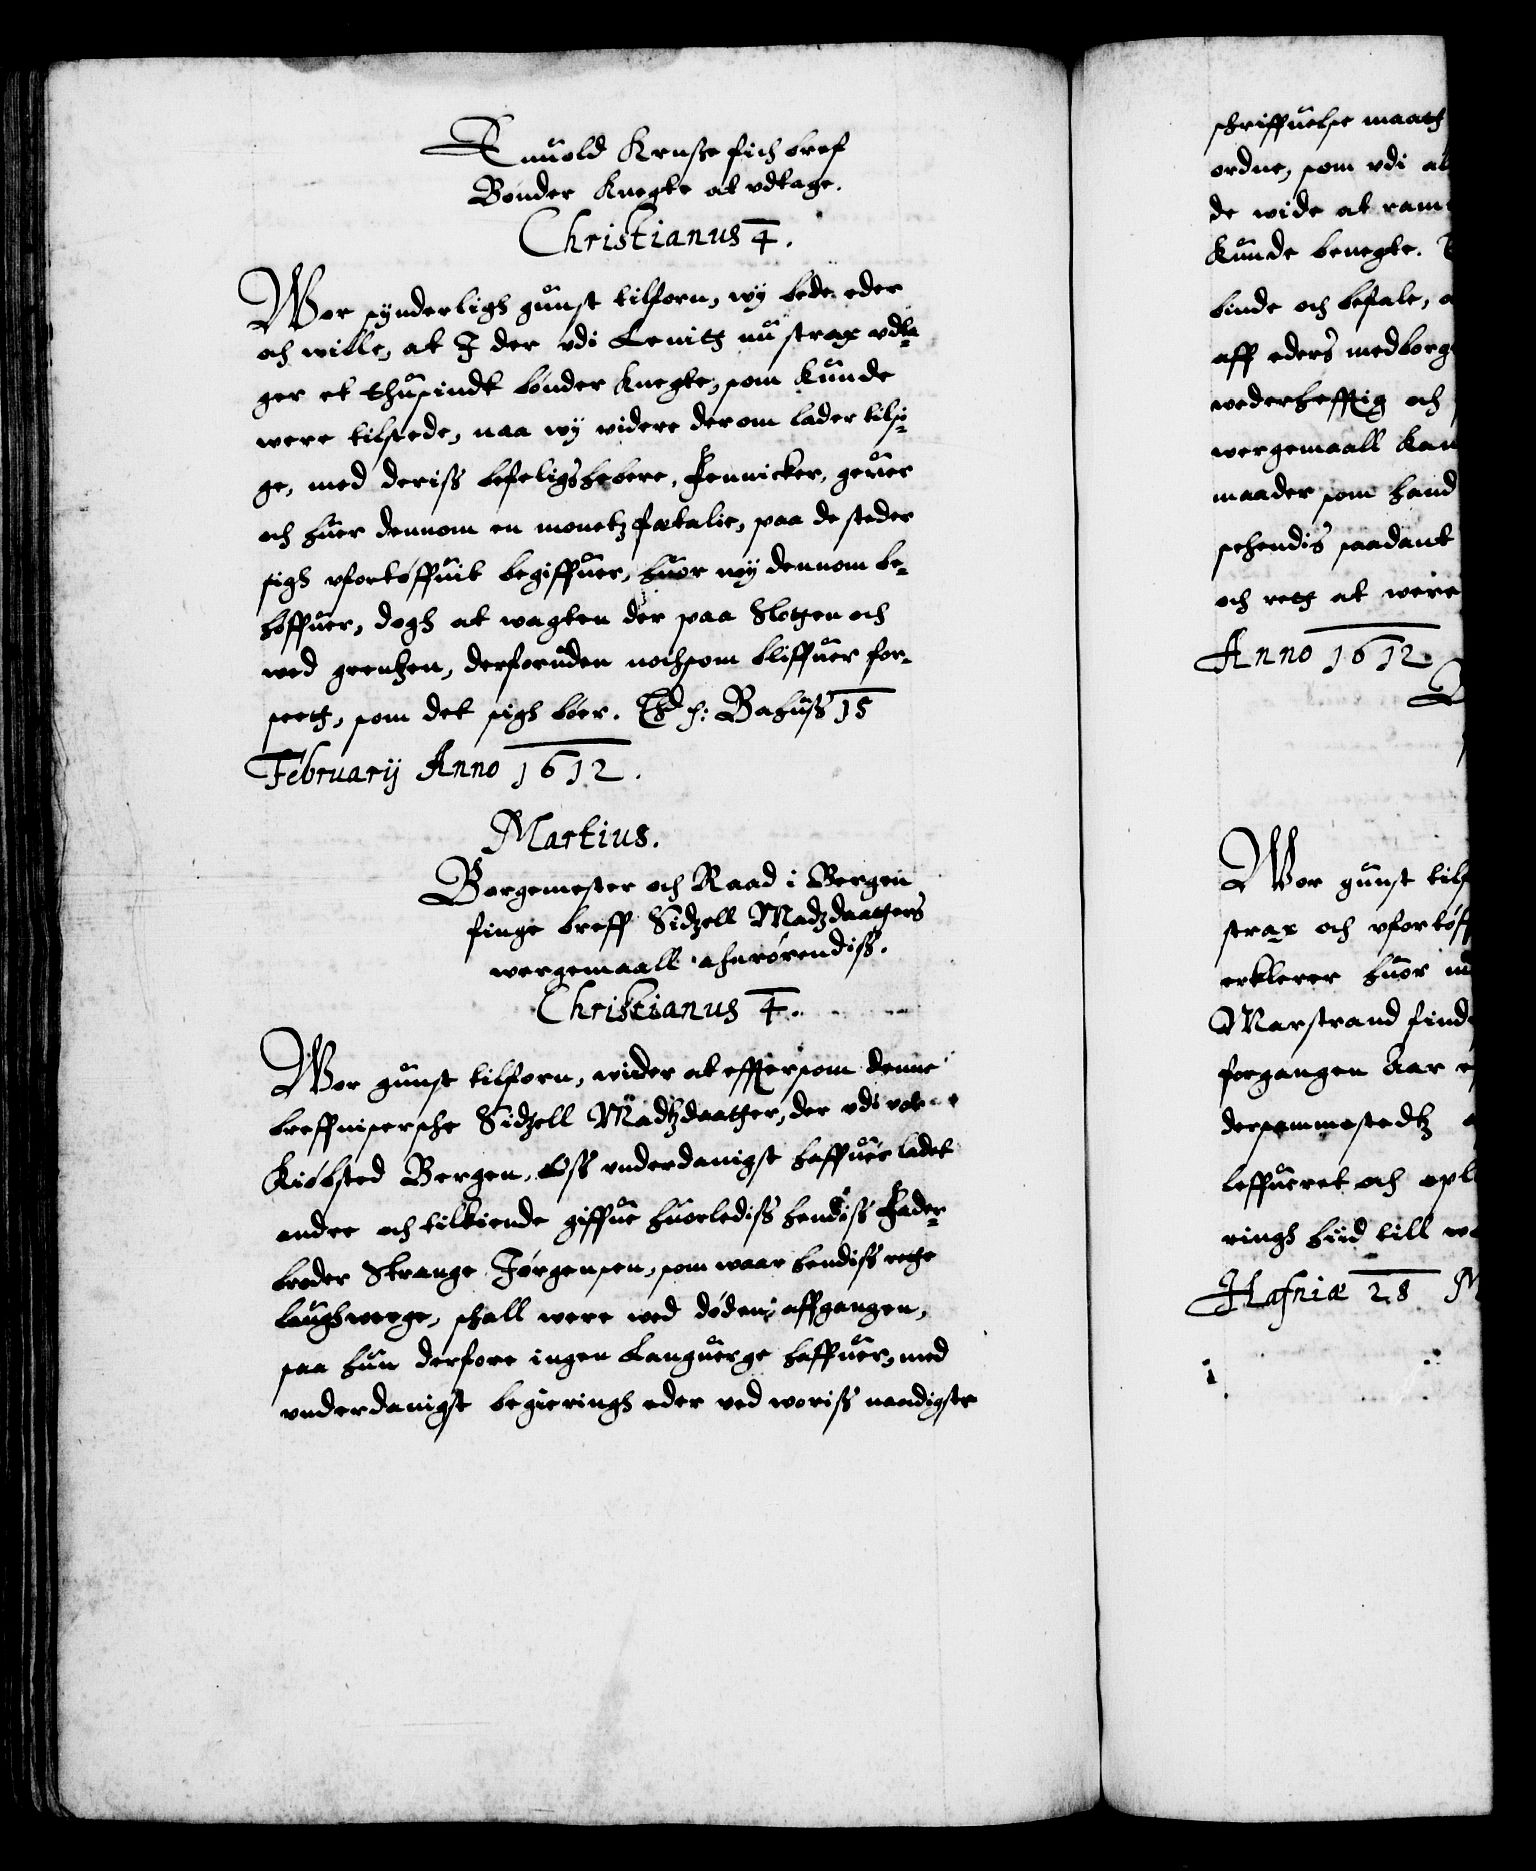 Enuold Krusse fich bref
Bønder Knegte at vdtage.
Christianus 4.
Wor synderligh gunst tilforn, wy bede eder
och wille, at I der vdi Lenitt nu strax vdta-
ger et thusindt bønder Knegte, som kunde
were tilstede, naa wy videre derom lader tilsi-
ge, med deriss befeligshebere, Fennicker, geuer
och huer dennom en monetz fætalie, paa de steder
sigh vfortøffuit begiffuer, huor wy dennom be-
høffuer, dogh at wagten der paa Slotten och
wed grentzen, derforuden nochsom bliffuer for-
seett, som det sigh bøer. Bahuss 15
February Anno 1612.
Martius.
Borgemester och Raad i Bergen
finge breff Sidzell Madzdaatters
wergemaall anrørendiss.
Christianus 4.
Wor gunst tilforn, wider at effter som denne
breffuisersche Sidzell Madtzdaatter, der vdi vor
Kiøbsted Bergen, Oss vnderdanigst haffuer ladet
andre och tilkiende giffue huorlediss hendiss Fader-
broder Strange Jørgensen, som waar hendiss rette
laughwerge, schall were wed døden affgangen,
saa hun derfore ingen Lauguerge haffuer, med
vnderdanigst begieringh eder ved woriss naadigste
schriffuelse maatt
ordne, som vdi al
de wide at ram
kunde benegte.
binde och befale,
aff eders medborg
wederhefftig och
wergemaall kan
maader som hand
schendis saadant
och rett at were
Anno 1612
Wor gunst tilf
strax och vfortøff
erklerer huor
Marstrand find
forgangen Aar
dersammestedtz
leffueret och opl
ringh hiid till
Hafniæ 28 M